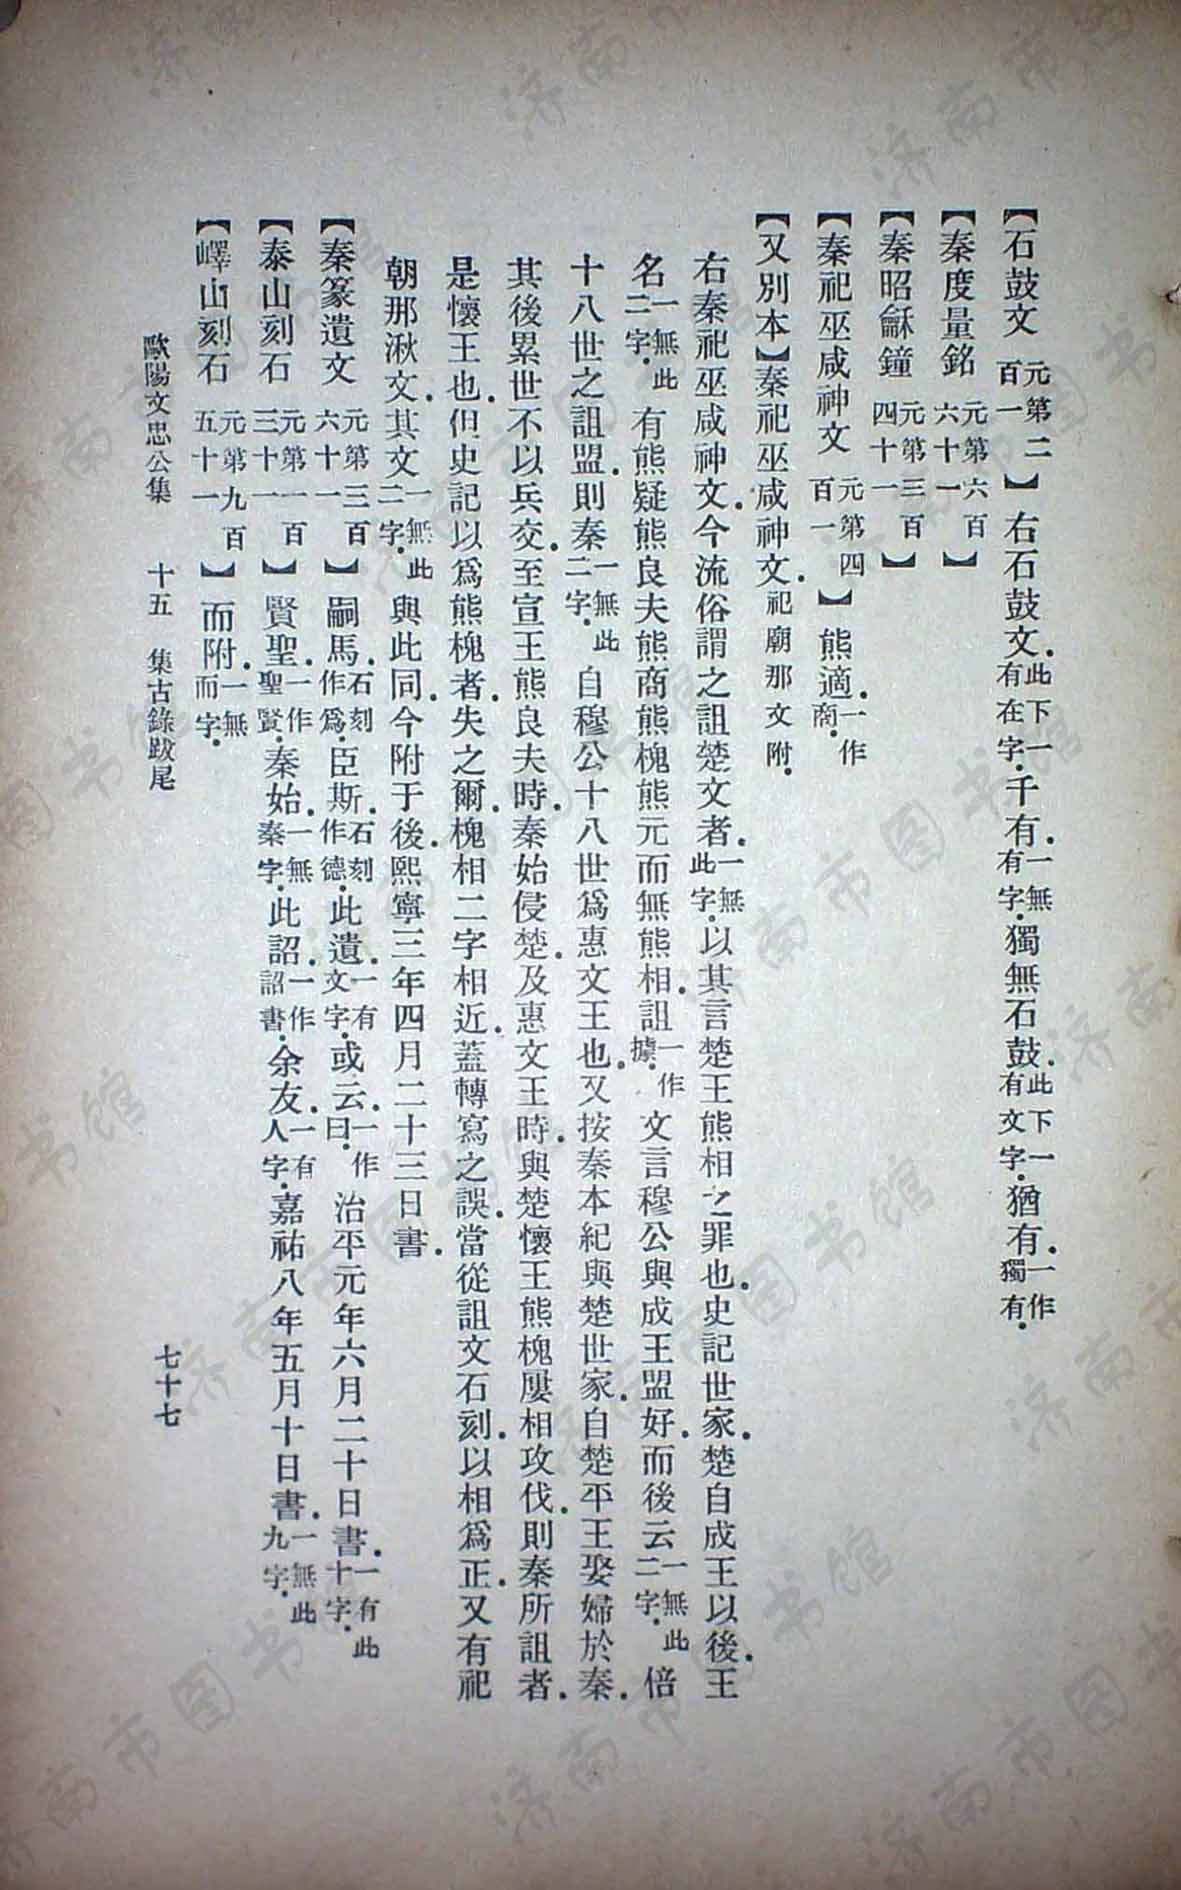 【石鼓文元第二百一】右石鼓文．此下一有在字．千有．一無有字．獨無石鼓．此下一有文字．猶有．一作獨有．
【秦度量銘元第六百六十一】
【秦昭龢鐘元第三百四十一】
【秦祀巫咸神文元第四百一】熊適．一作商．
【又別本】秦祀巫咸神文．祀廟那文附．
右秦祀巫咸神文．今流俗謂之詛楚文者．一無此字．以其言楚王熊相之罪也．史記世家．楚自成王以後．王
名一無此二字．有熊疑熊良夫熊商熊槐熊元而無熊相．詛一作據．文言穆公與成王盟好．而後云一無此二字．倍
十八世之詛盟．則秦一無此二字．自穆公十八世爲惠文王也．又按秦本紀與楚世家．自楚平王娶婦於秦．
其後累世不以兵交．至宣王熊良夫時．秦始侵楚．及惠文王時．與楚懷王熊槐屢相攻伐．則秦所詛者．
是懷王也．但史記以爲熊槐者．失之爾．槐相二字相近．蓋轉寫之誤．當從詛文石刻．以相爲正．又有祀
朝那湫文．其文一無此二字．與此同．今附于後．熙寧三年四月二十三日書．
【秦篆遺文元第三百六十一】嗣馬．石刻作爲．臣斯．石刻作德．此遺．一有文字．或云．一作曰．治平元年六月二十日書．一有此十字．
【泰山刻石元第一百三十一】賢聖．一作聖賢．秦始．一無秦字．此詔．一作詔書．余友．一有人字．嘉祐八年五月十日書．一無此九字．
【嶧山刻石元第九百五十一】而附．一無而字．
歐陽文忠公集 十五 集古錄跋尾 七十七
济南市图书馆